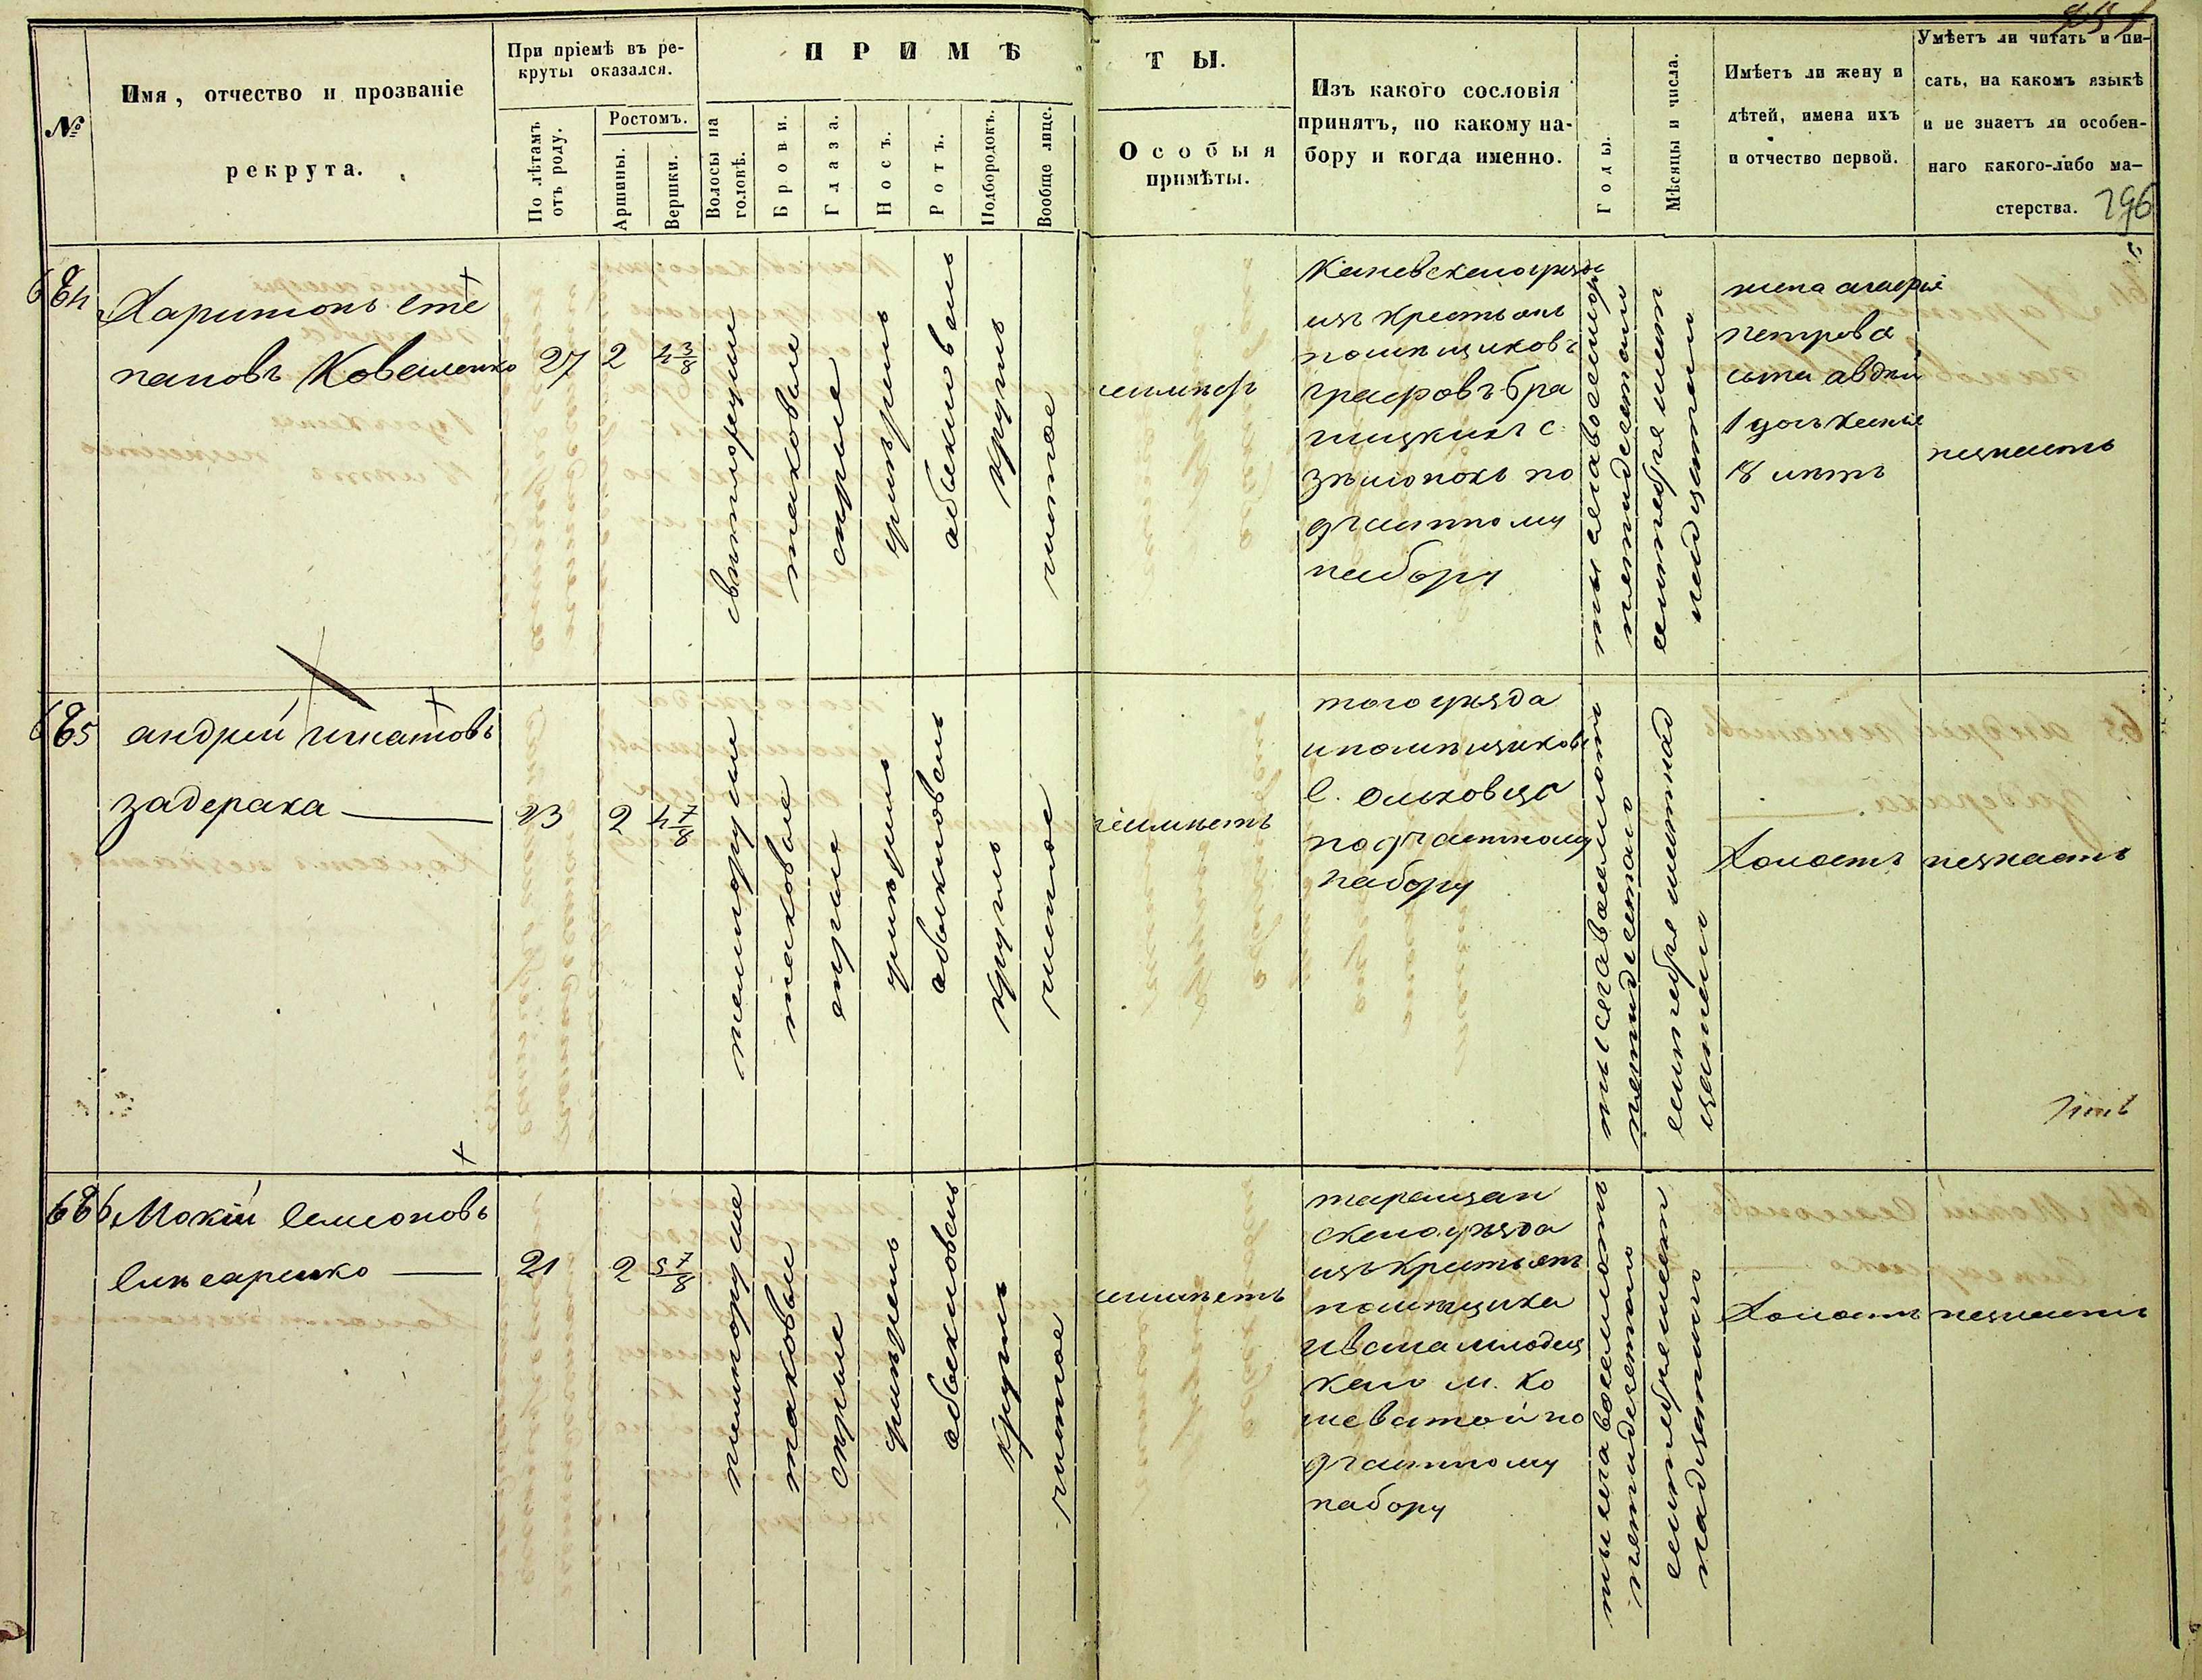 №
Имя, отчество и прозваніе
рекрута.
При пріемѣ въ ре-
круты оказался.
По лѣтамъ
отъ роду.
Ростомъ.
Аршины.
Вершки.
ПРИМѢ
ТЫ.
Волосы на
головѣ.
Брови.
Глаза.
Носъ.
Ротъ.
Подбородокъ.
Вообще лице.
Особыя
примѣты.
Изъ какого сословія
принятъ, по какому на-
бору и когда именно.
Годы.
Мѣсяцы и числа.
Имѣетъ ли жену и
дѣтей, имена ихъ
и отчество первой.
Умѣетъ ли читать и пи-
сать, на какомъ языкѣ
и не знаетъ ли особен-
наго какого-либо ма-
стерства.
296
684
Харитонъ Сте
пановъ Коваленко
27
2
4 3/8
свѣтлорусые
таковые
сѣрые
умѣрен
обыкновен
круглъ
чистое
неимѣетъ
Каневскаго уѣзда
изъ крестьянъ
помѣщиковъ
графовъ Бра
ницкихъ с.
по
9 частному
набору
пятидесятого
сентября шест
надцатаго
жена
Петрова
сынъ Авдѣй
1 году
18 лѣтъ
незнаетъ
685
андрей игнатовъ
задерака
23
2
4 7/8
темнорусые
таковые
сѣрые
умѣрен
обыкновен
круглъ
чистое
неимѣетъ
того уѣзда
ипомѣщиковъ
С. Ольховца
по 9 частному
набору
тысяча восемьсотъ
пятидесятаго
сентября шестнад
цатаго
Холостъ
незнаетъ
686
Мокій Семеоновъ
21
2
5 7/8
темнорусые
таковые
сѣрые
умѣрен
обыкновен
круглъ
чистое
неимѣетъ
таращан
скаго уѣзда
изъ крестьянъ
помѣщика
Ивана Млодец
каго м. Ко
шеватой по
9 частному
набору
тысяча восемьсотъ
пятидесятого
сентября шест
надцатаго
Холостъ
незнаетъ